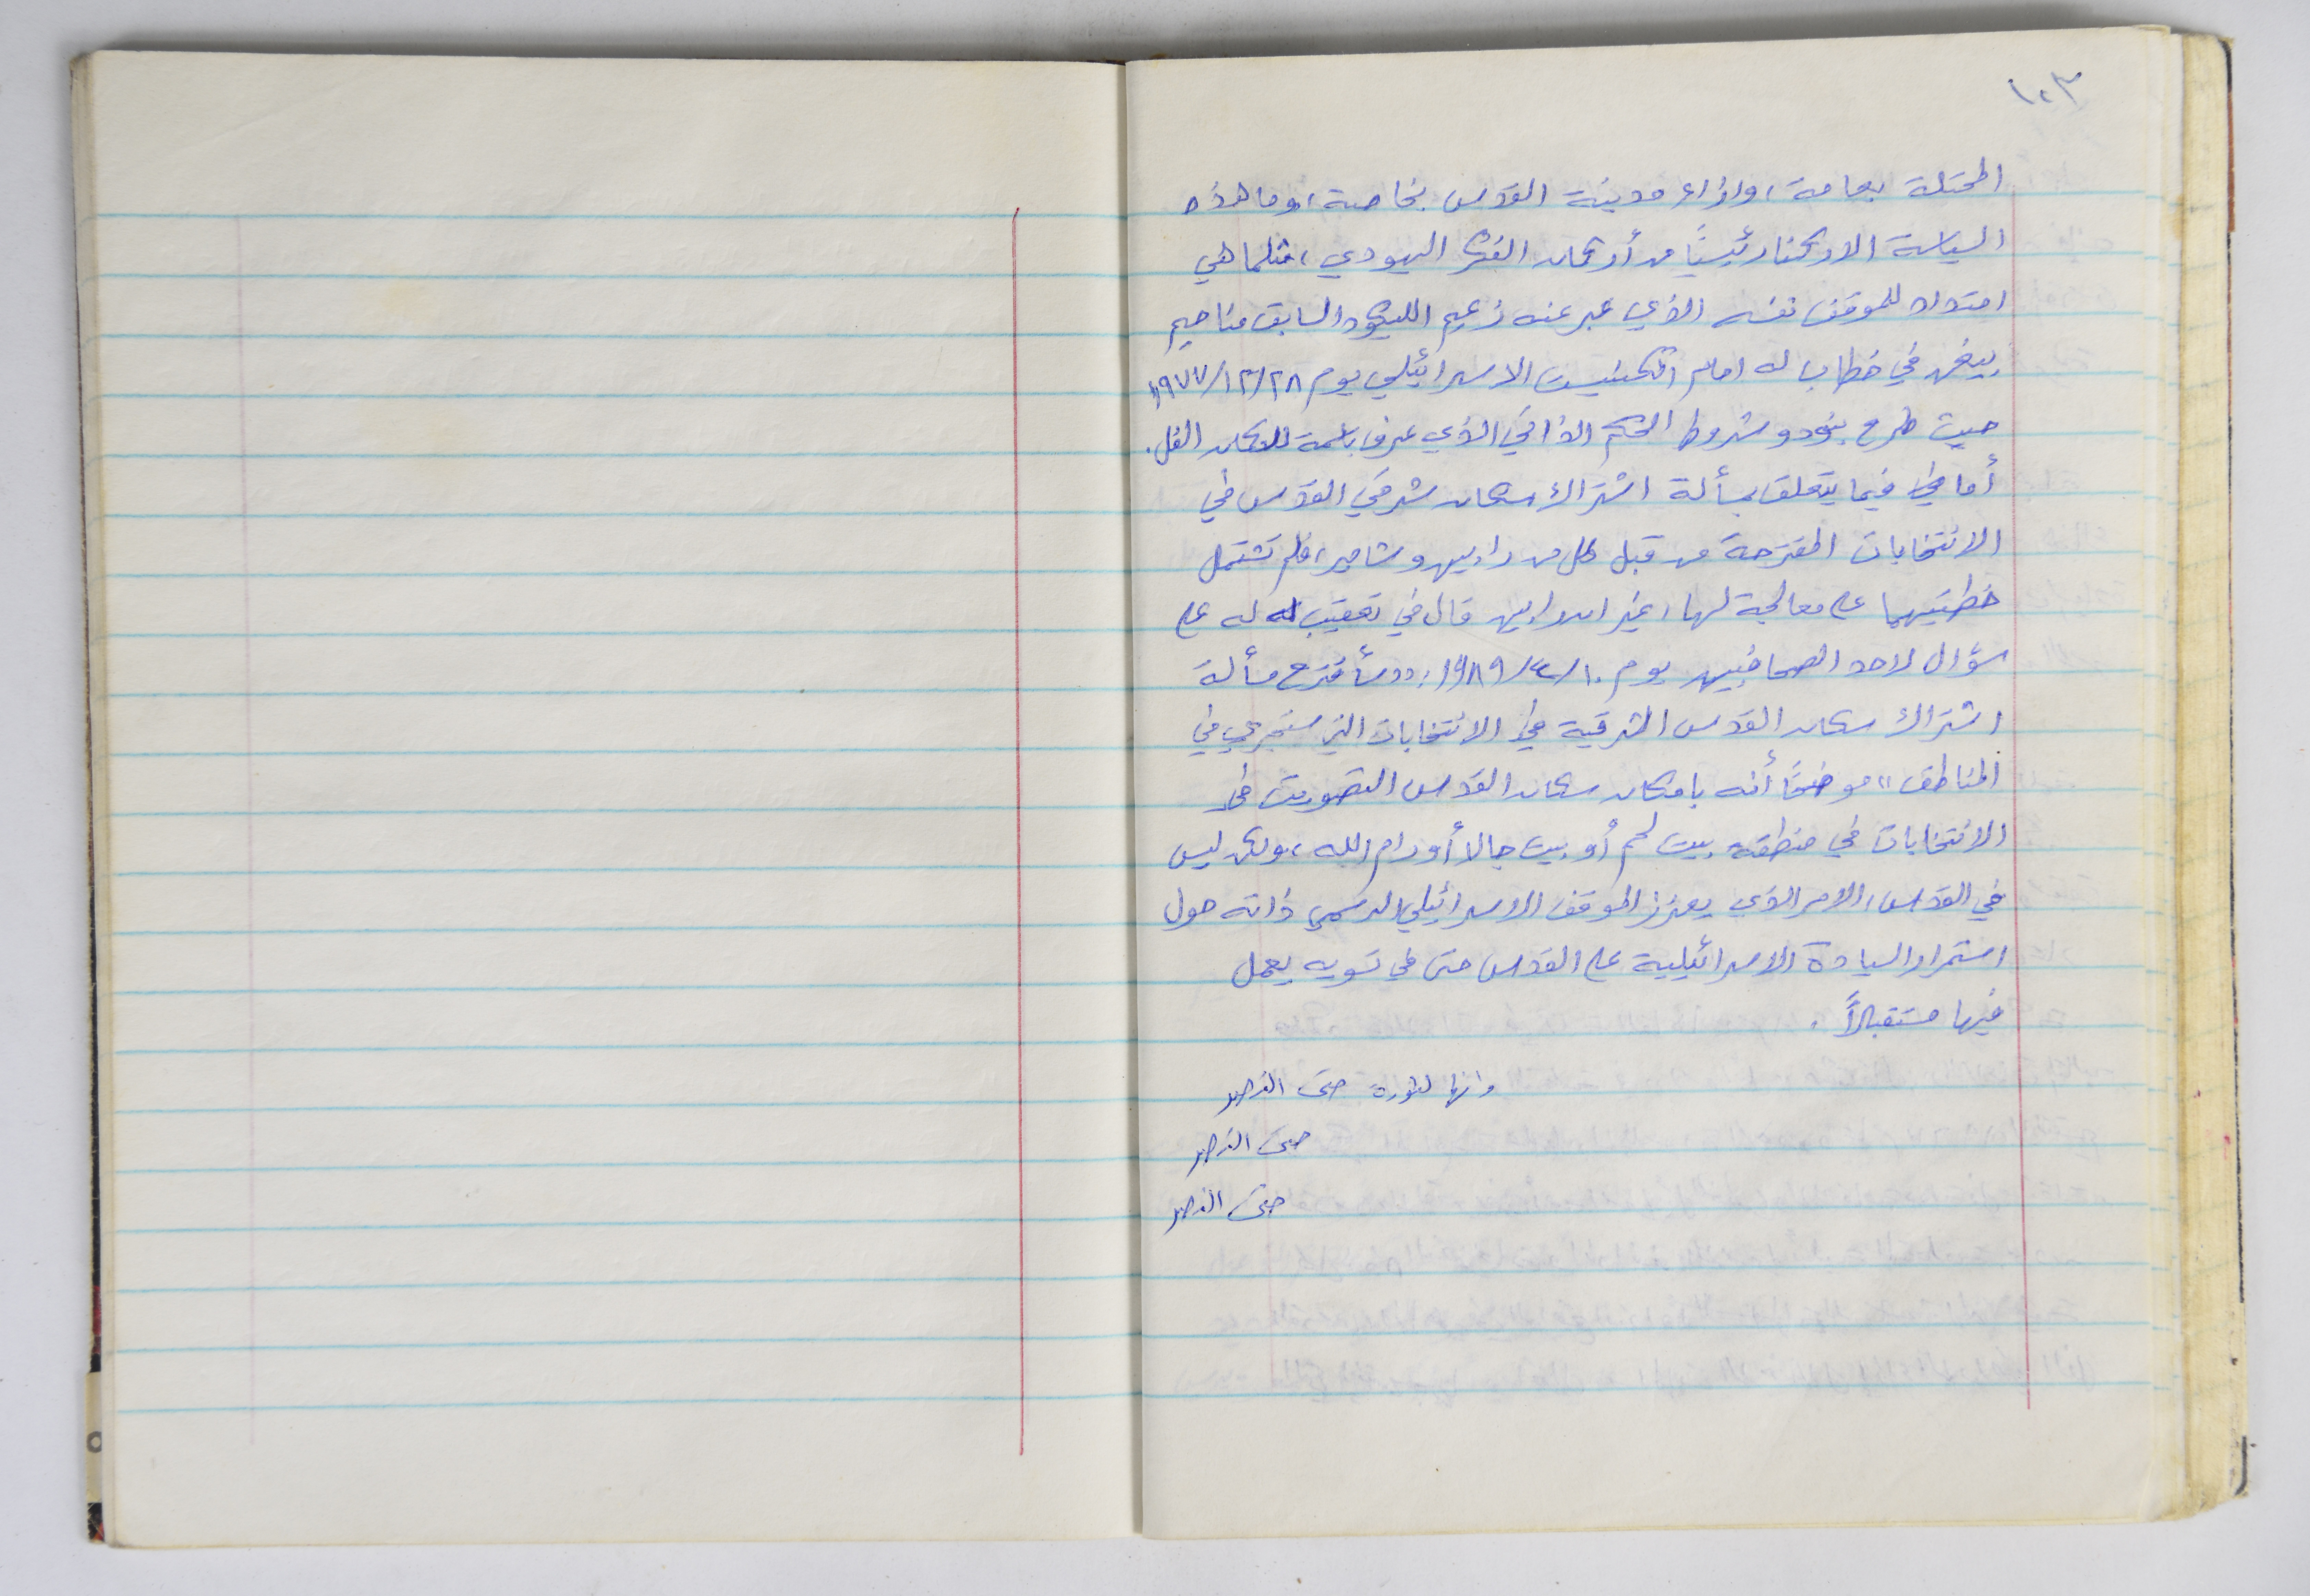 ١٠٣
المحتلة بعامة، وازاء مدينة القدس بخاصة، وما هذه
السياسة الا ركنا رئيسيًا من أركان الفكر اليهودي، مثلما هي
امتداد للموقف نفسه الذي عبر عنه زعيم الليكود السابق مناحيم
بيغن في خطاب له امام الكنيست الاسرائيلي يوم ١٩٧٧/١٢/٢٨
حيث طرح بنود وشروط الحكم الذاتي الذي عرف باسمة للسكان الفل.
أما في فيما يتعلق بمسألة اشتراك سكان شرقي القدس في
الانتخابات المقترحة من قبل كل من رابين وشامير، فلم تشتمل
خطتيهما على معالجة لها، غير ان رابين قال في تعقيب له له على
سؤال لاحد الصحافيين يوم ١٩٨٩/٤/١٠: "سأقترح مسألة
اشتراك سكان القدس الشرقية في الانتخابات التي ستجري في
المناطق" موضحًا أنه بامكان سكان القدس التصويت في
الانتخابات في منطقة بيت لحم أو بيت جالا أو رام الله، ولكن ليس
في القدس، الامر الذي يعزز الموقف الاسرائيلي الرسمي ذاته حول
استمرار السيادة الاسرائيلية على القدس حتى في تسويه يعمل
فيها مستقبلاً.
وانها لثورة حتى النصر
حتى النصر
حتى النصر